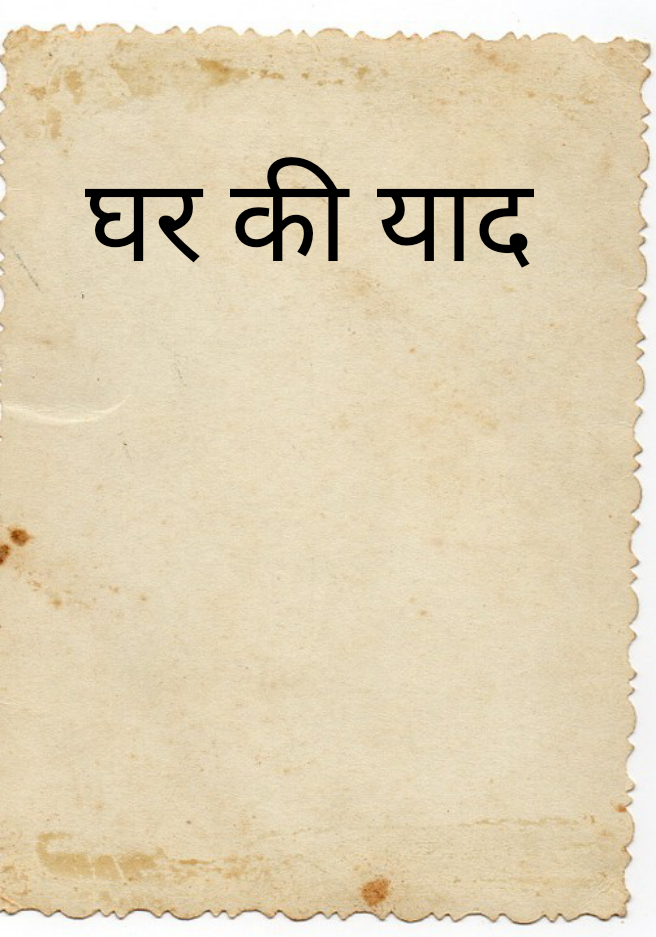 घर की याद